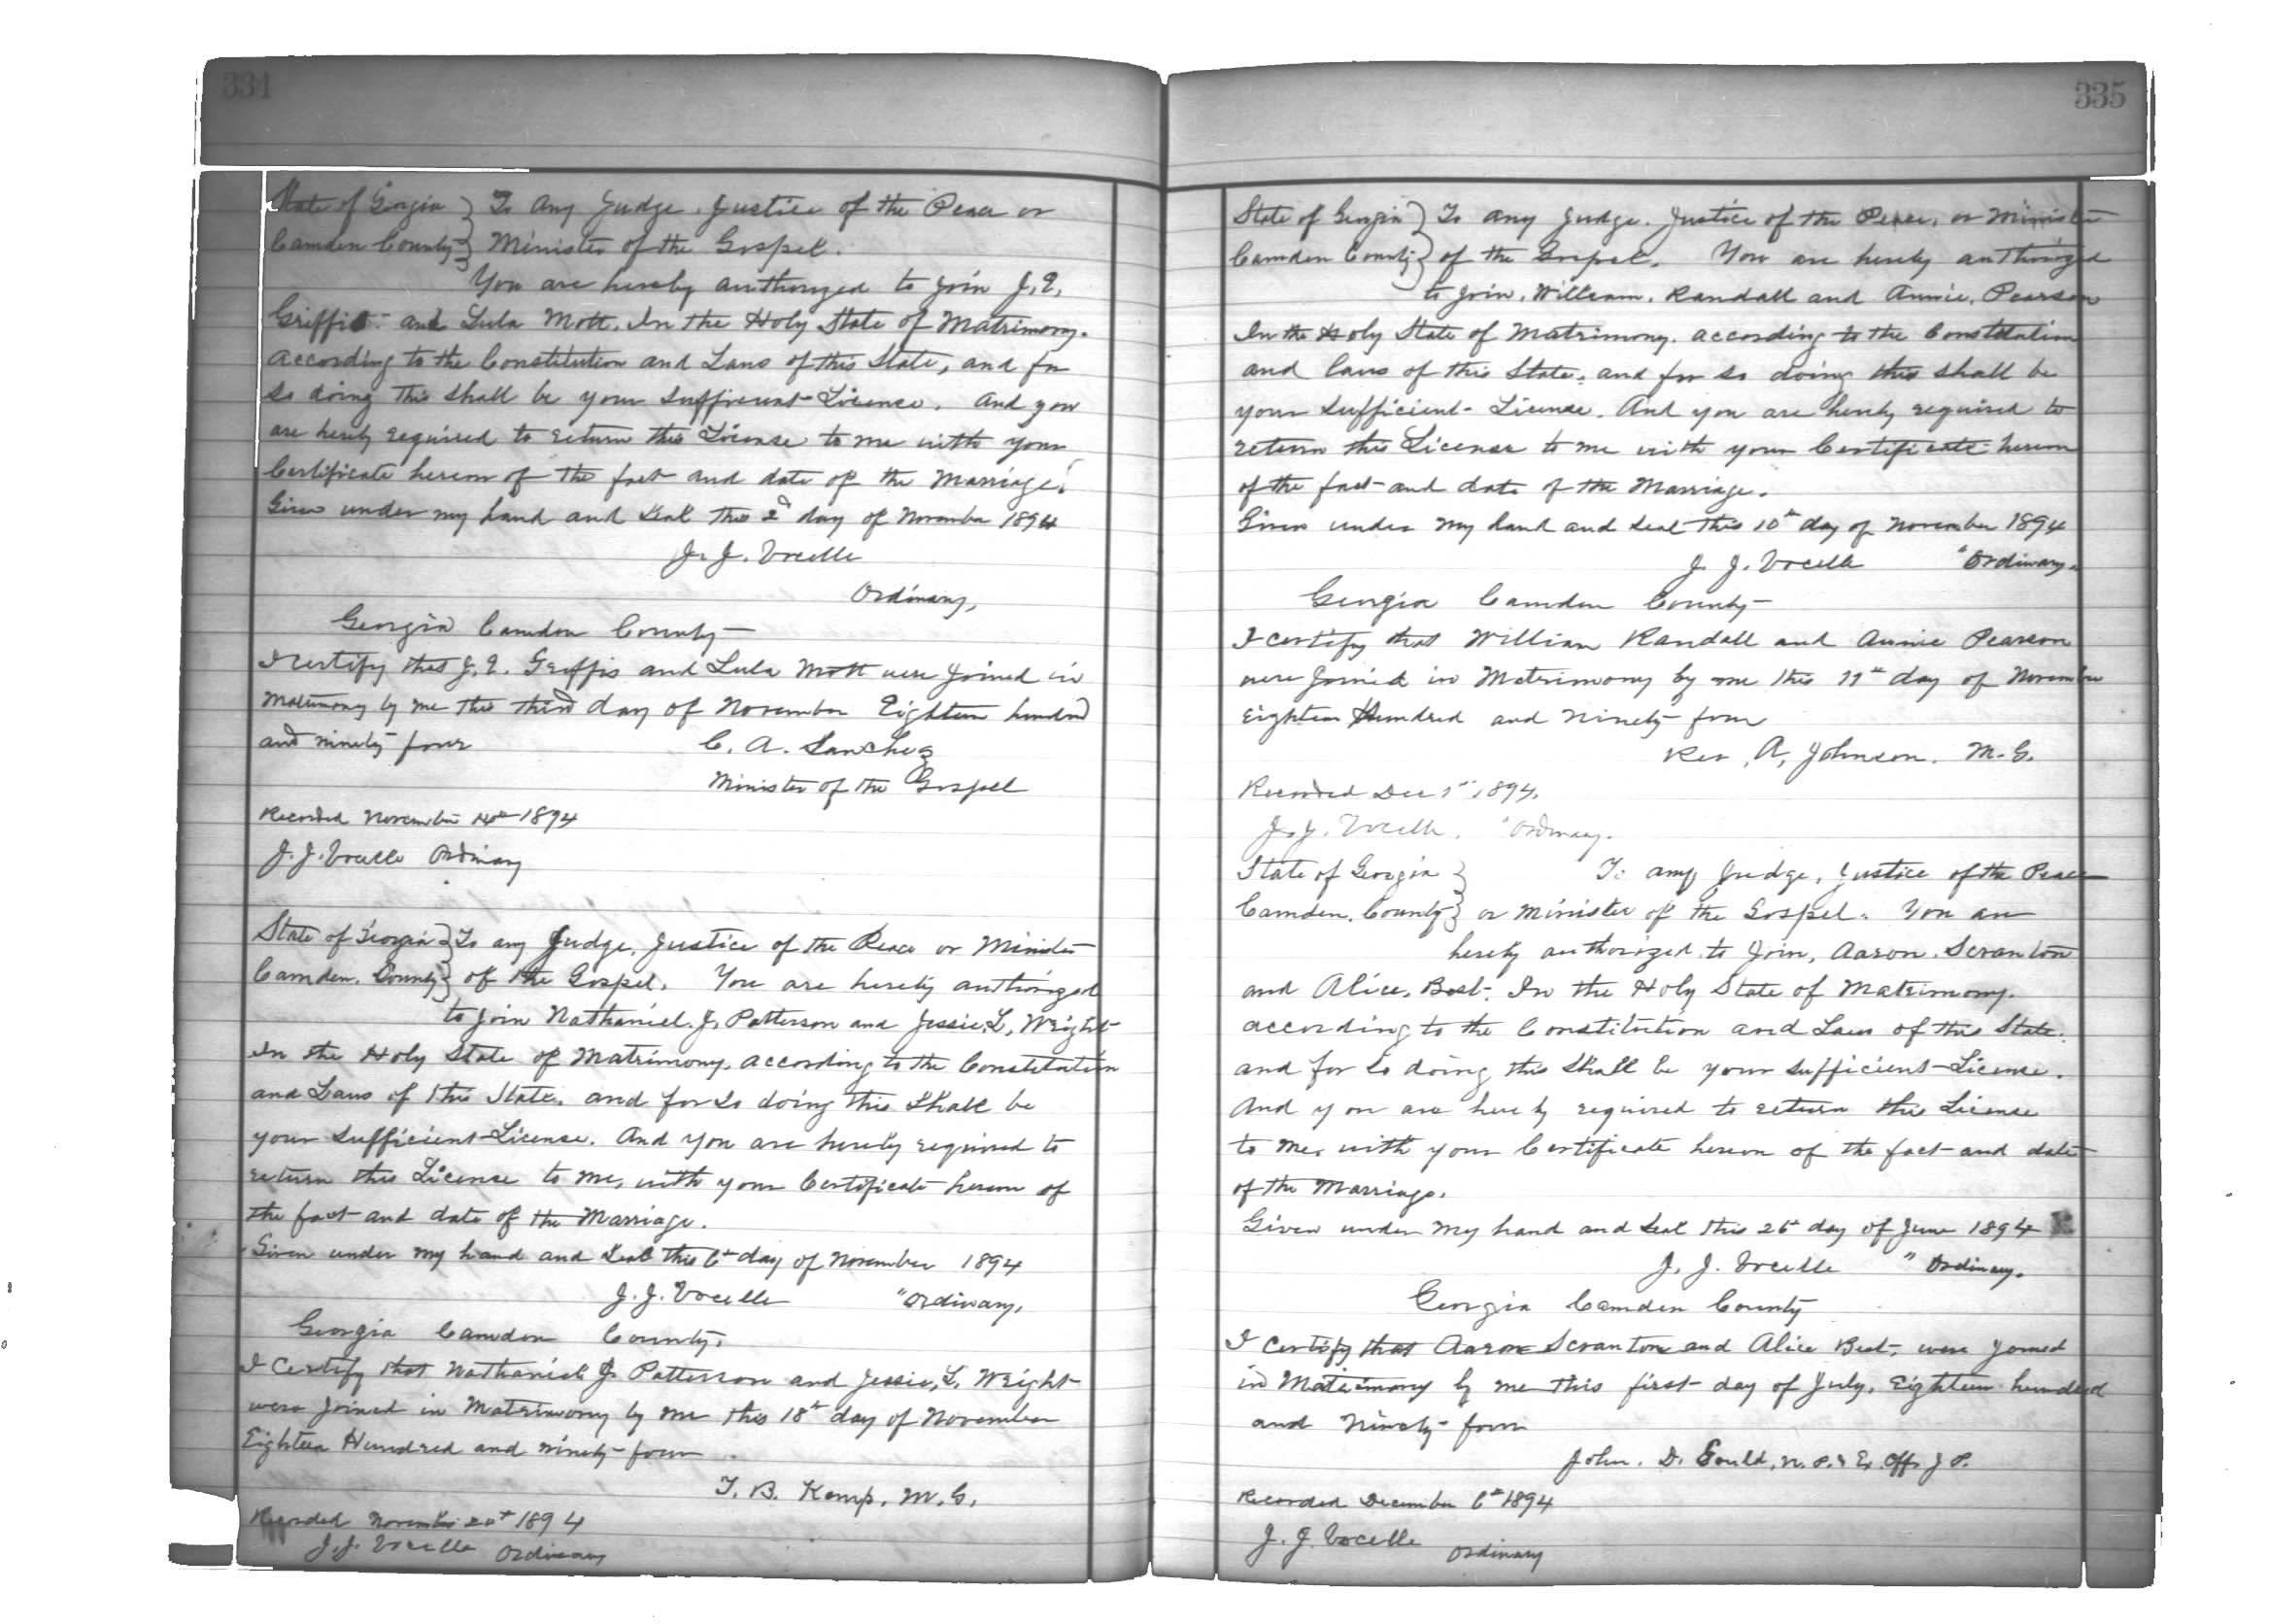 334
State of Georgia } To any Judge. Justice of the Peace or
Camden County } Minister of the Gospel.
You are hereby authorized to join J. E.
Griffis and Lula Mott. In the Holy State of Matrimony.
according to the Constitution and Laws of this State, and for
so doing this shall be your sufficient License. And you
are hereby required to return this License to me with your
Certificate hereon of the fact and date of the Marriage.
Given under my hand and Seal this 2d day of November 1894
J. J. Vocelle
Ordinary,
Georgia Camden County
I certify that J. E. Griffis and Lula Mott were joined in
Matrimony by me this third day of November Eighteen hundred
and ninety four C. A. Sanchez
Minister of the Gospel
Recorded November 14th 1894
J. J. Vocelle Ordinary
State of Georgia } To any Judge, Justice of the Peace or Minister
Camden. County } of the Gospel. You are hereby authorized
to join Nathaniel. J. Patterson and Jessie, L, Wright
In the Holy State of Matrimony. according to the Constitution
and Laws of this State. and for so doing this shall be
your sufficient License. And you are hereby required to
return this License to me, with your Certificate hereon of
the fact and date of the Marriage.
Given under my hand and Seal this 6th day of November 1894
J. J. Vocelle "Ordinary,
Georgia Camden County.
I Certify that Nathaniel J. Patterson and Jessie, L. Wright
were joined in Matrimony by me this 18th day of November
Eighteen Hundred and ninety-four
T. B. Kemp, M. G.
Recorded November 20th 1894
J. J. Vocelle Ordinary
335
State of Georgia } To any Judge. Justice of the Peace, or Minister
Camden County } of the Gospel. You are hereby authorized
to join, William, Randall and Annie, Pearson
In the Holy State of Matrimony. according to the Constitution
and laws of this State. and for so doing this shall be
your sufficient License. And you are hereby required to
return this License to me with your Certificate hereon
of the fact and date of the Marriage.
Given under my hand and Seal this 10th day of November 1894
J. J. Vocelle "Ordinary.
Georgia Camden County
I certify that William Randall and Annie Pearson
were joined in Matrimony by me this 11th day of November
Eighteen Hundred and ninety-four
Rev. A, Johnson. M. G.
Recorded Dec 1st, 1894,
J. J. Vocelle. "Ordinary.
State of Georgia } To any Judge, Justice of the Peace
Camden. County } or Minister of the Gospel. You are
hereby authorized to join, Aaron. Scranton
and Alice, Best. In the Holy State of Matrimony.
according to the Constitution and Laws of this State.
and for so doing this shall be your sufficient License.
And you are hereby required to return this License
to me, with your Certificate hereon of the fact and date
of the Marriage.
Given under my hand and Seal this 26th day of June 1894
J. J. Vocelle " Ordinary.
Georgia Camden County
I certify that Aaron Scranton and Alice Best, were joined
in Matrimony by me this first day of July, Eighteen hundred
and Ninety-four
John. D. Gould, N. P. & Ex. Off. J P.
Recorded December 6th 1894
J. J. Vocelle Ordinary